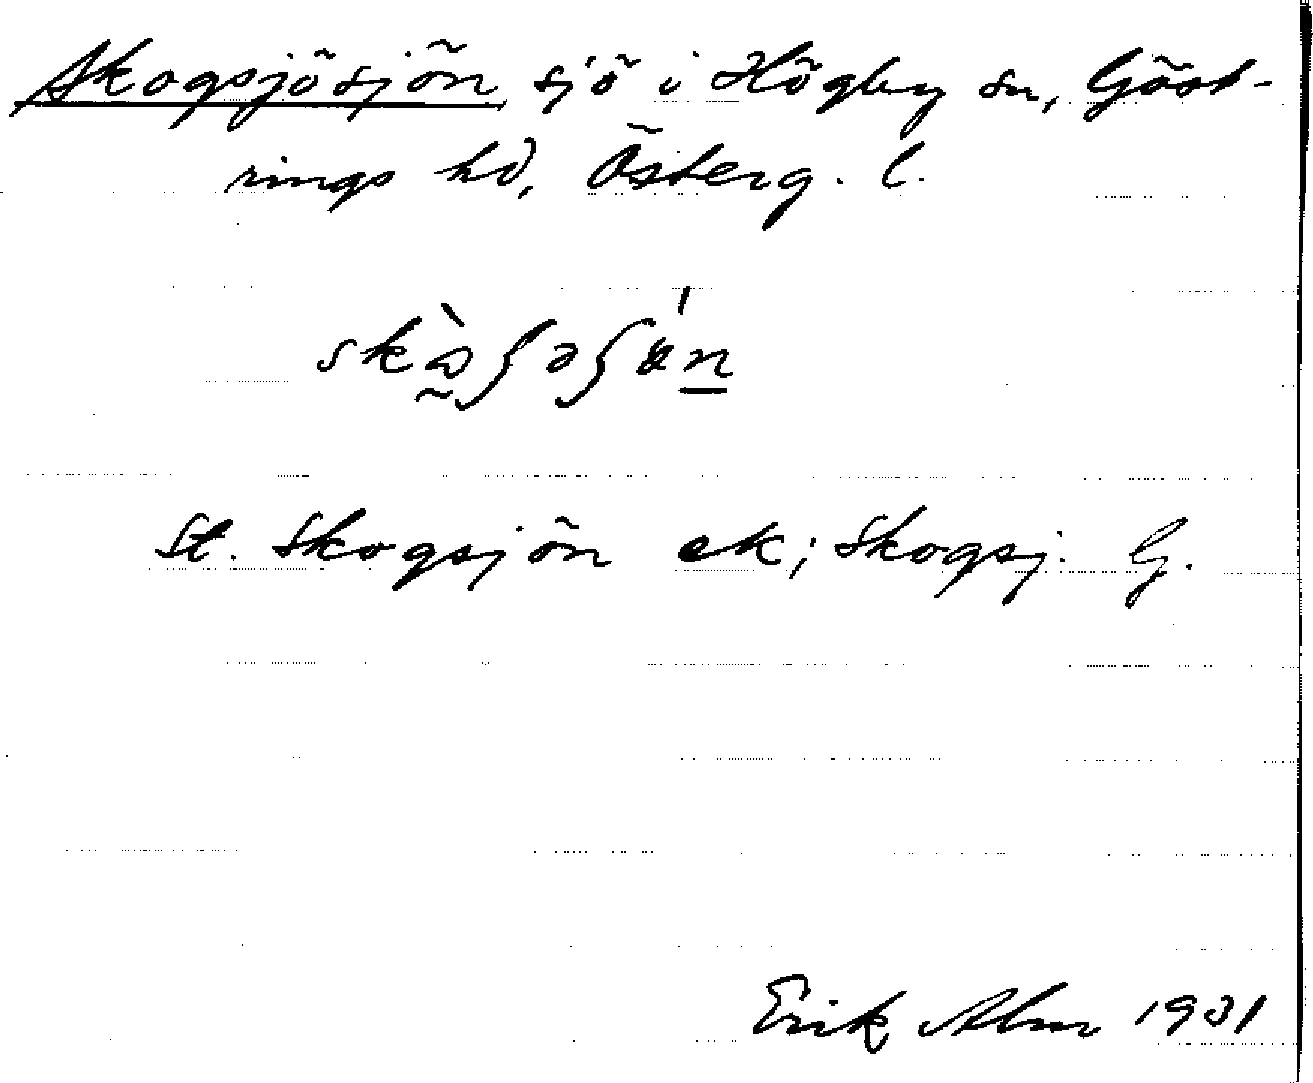 Skogsjösjön sjö i Högby sn, Göst-
rings hd, Österg. l.
St. Skogsjön ek; Skogsj. G.
Erik Alm 1931